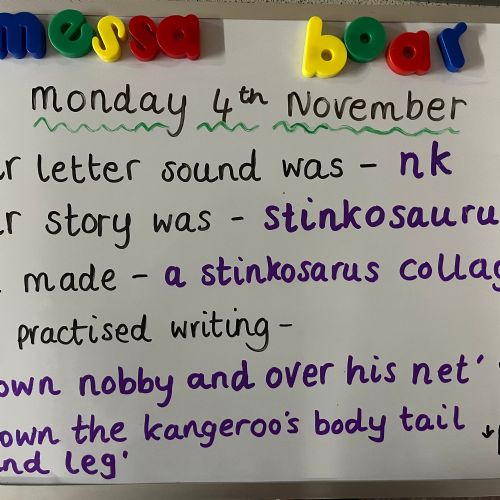 messa boar
monday 4th November
r letter sound was - nk
r story was - stinkosauru
made - a stinkosarus collag
practised writing -
own nobby and over his net'
own the kangeroo's body tail
nd leg'